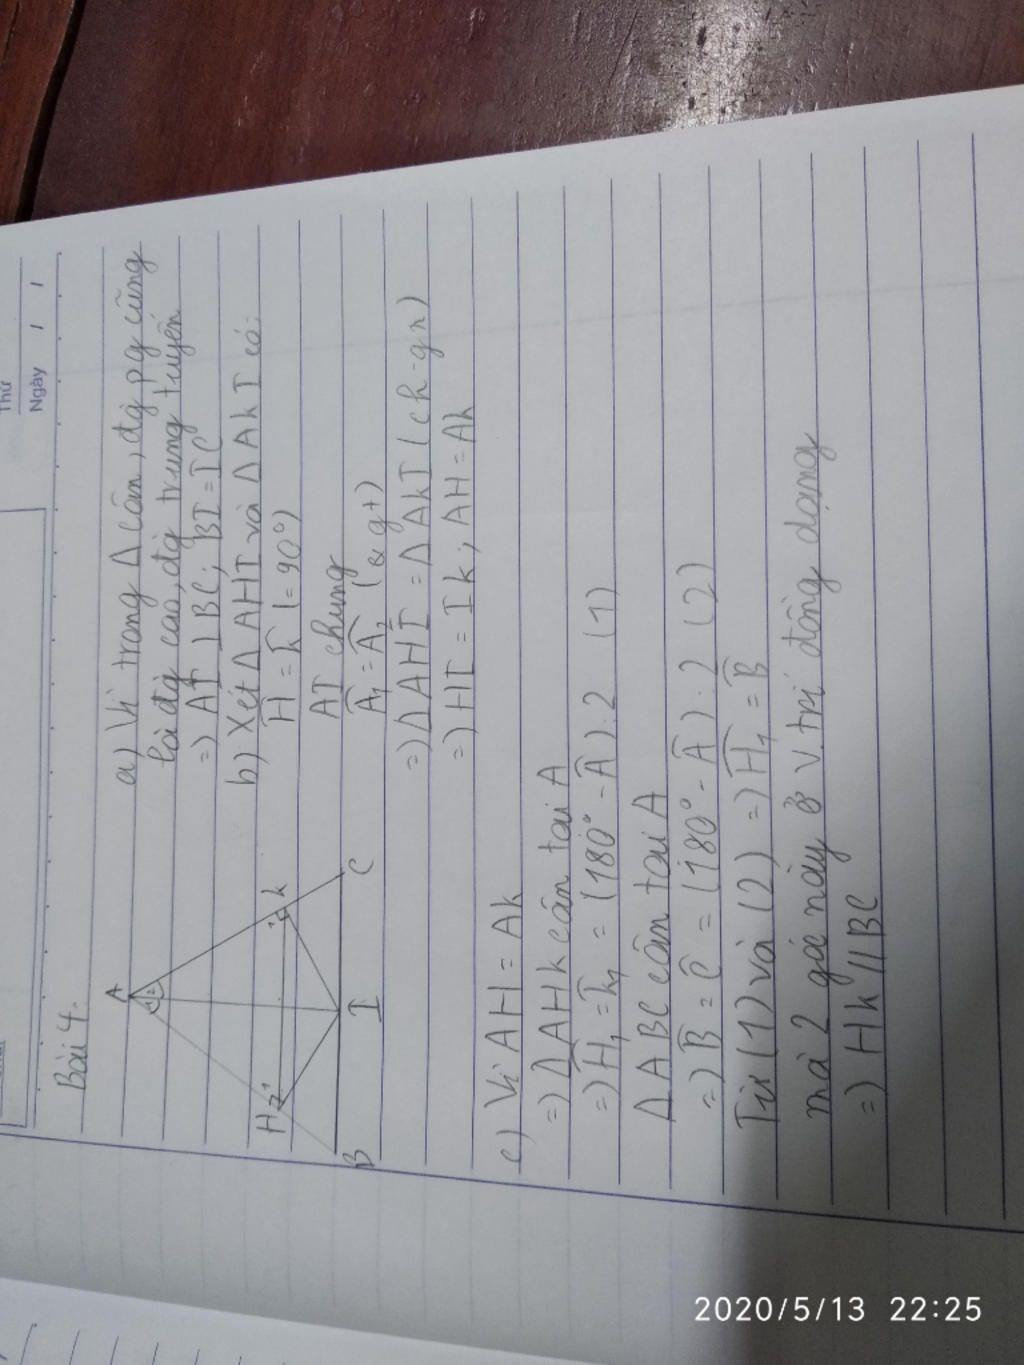 Thứ
Ngày / /
Bài 4.
a) Vì trong Δ cân, đg pg cũng
là đg cao, đg trung tuyến
=) AI ⊥ BC; BI = IC
b) Xét Δ AHI và Δ AkI có:
Ĥ = k̂ (= 90°)
AI chung
Â₁ = Â₂ (gt)
=) Δ AHI = Δ AkI (ch-gn)
=) HI = Ik; AH = Ak
A
1 2
H 1
1 k
B I C
c) Vì AH = Ak
=) Δ AHk cân tại A
=) Ĥ₁ = k̂₁ = (180° - Â) : 2 (1)
Δ ABC cân tại A
=) B̂ = Ĉ = (180° - Â) : 2 (2)
Từ (1) và (2) =) Ĥ₁ = B̂
mà 2 góc này ở v.trí đồng dạng
=) Hk // BC
2020/5/13 22:25